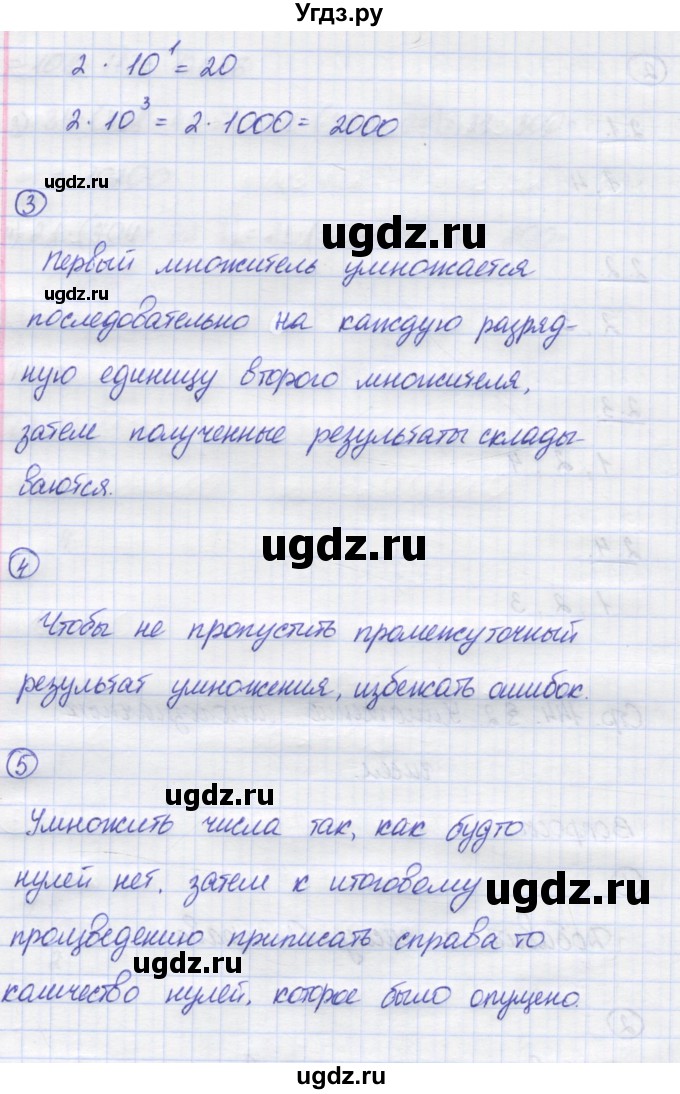 Угдз.ру
2 · 10¹ = 20
2 · 10³ = 2 · 1000 = 2000
ugdz.ru
3
ugdz.ru
Первый множитель умножается
ugdz.ru
последовательно на каждую разряд-
ную единицу второго множителя,
затем полученные результаты склады-
ваются.
ugdz.ru
4
Чтобы не пропустить промежуточный
результат умножения, избежать ошибок.
5
ugdz.ru
Умножить числа так, как будто
нулей нет, затем к итоговому
ugdz.ru
произведению приписать справа то
количество нулей, которое было опущено.
ugdz.ru